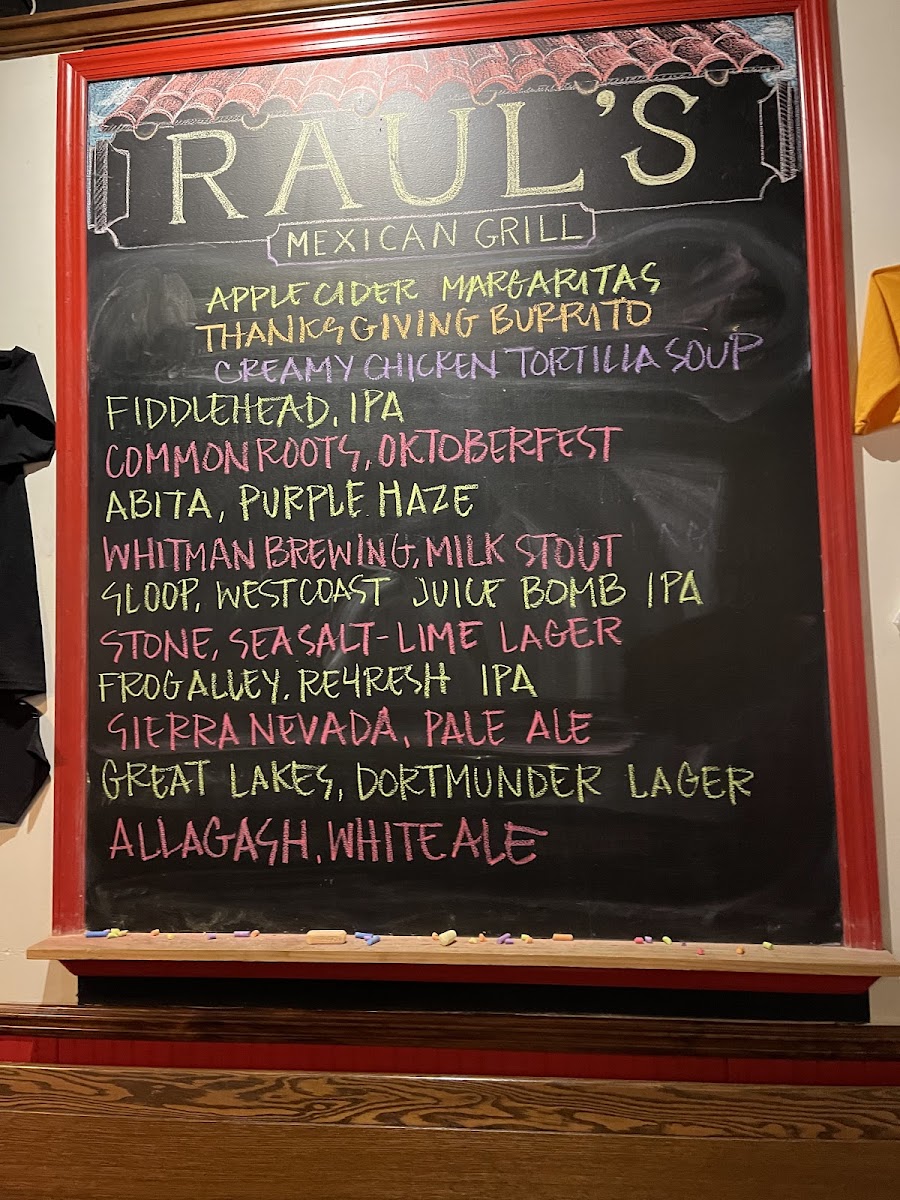 RAUL'S
MEXICAN GRILL
APPLE CIDER MARGARITAS
THANKSGIVING BURRITO
CREAMY CHICKEN TORTILLA SOUP
FIDDLEHEAD, IPA
COMMON ROOTS, OKTOBERFEST
ABITA, PURPLE HAZE
WHITMAN BREWING, MILK STOUT
SLOOP, WEST COAST JUICE BOMB IPA
STONE, SEA SALT-LIME LAGER
FROG ALLEY, RE4RESH IPA
SIERRA NEVADA, PALE ALE
GREAT LAKES, DORTMUNDER LAGER
ALLAGASH, WHITE ALE